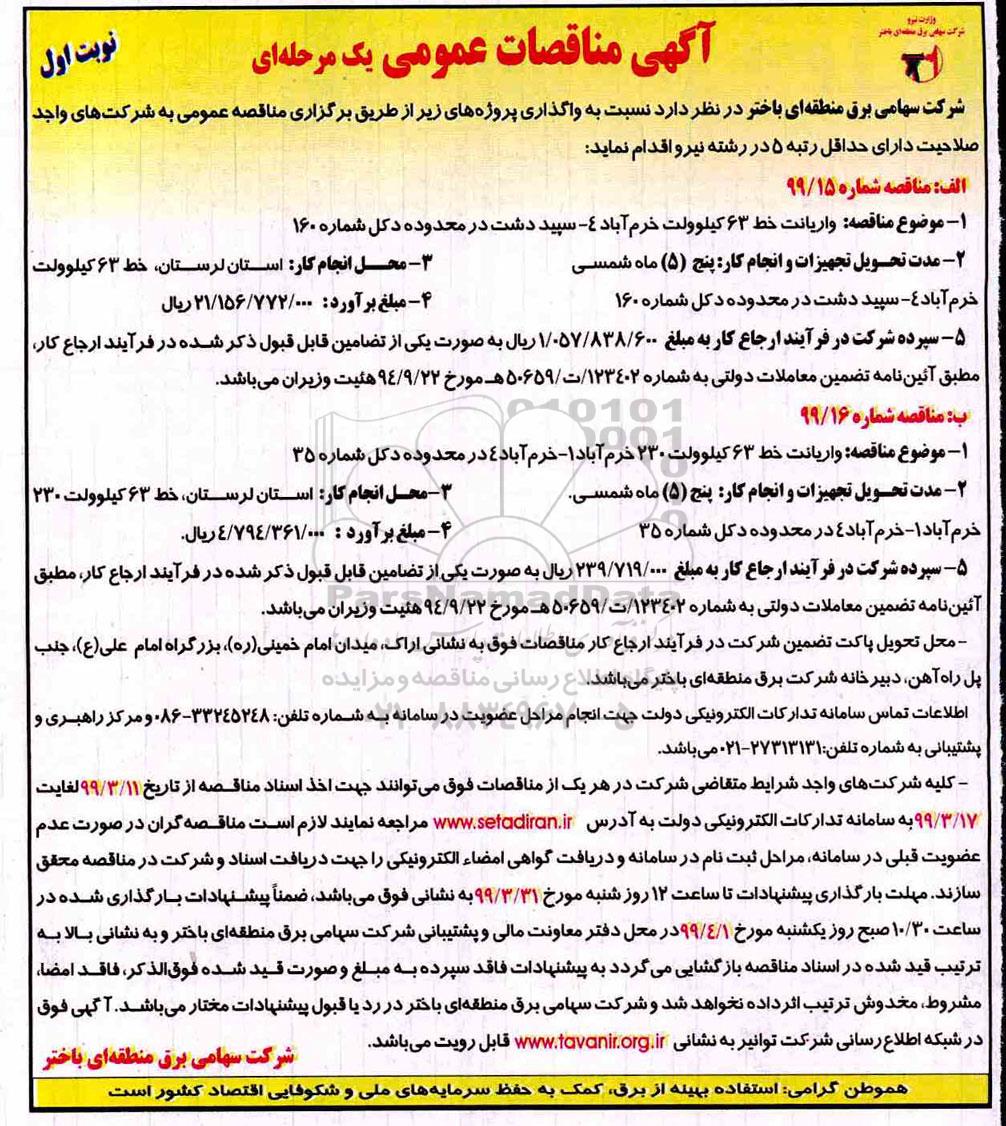 وزارت نیرو
شرکت سهامی برق منطقه‌ای باختر
آگهی مناقصات عمومی یک مرحله‌ای
نوبت اول
شرکت سهامی برق منطقه‌ای باختر در نظر دارد نسبت به واگذاری پروژه‌های زیر از طریق برگزاری مناقصه عمومی به شرکت‌های واجد
صلاحیت دارای حداقل رتبه ۵ در رشته نیرو اقدام نماید:
الف: مناقصه شماره ۹۹/۱۵
۱- موضوع مناقصه: واریانت خط ۶۳ کیلوولت خرم‌آباد ٤- سپید دشت در محدوده دکل شماره ۱۶۰
۲- مدت تحویل تجهیزات و انجام کار: پنج (۵) ماه شمسی ۳- محل انجام کار: استان لرستان، خط ۶۳ کیلوولت
خرم‌آباد ٤- سپید دشت در محدوده دکل شماره ۱۶۰ ۴- مبلغ برآورد: ۲۱/۱۵۶/۷۷۲/۰۰۰ ریال
۵- سپرده شرکت در فرآیند ارجاع کار به مبلغ ۱/۰۵۷/۸۳۸/۶۰۰ ریال به صورت یکی از تضامین قابل قبول ذکر شده در فرآیند ارجاع کار،
مطبق آئین‌نامه تضمین معاملات دولتی به شماره ۱۲۳٤۰۲/ت/۵۰۶۵۹ هـ مورخ ۹٤/۹/۲۲ هئیت وزیران می‌باشد.
ب: مناقصه شماره ۹۹/۱۶
۱- موضوع مناقصه: واریانت خط ۶۳ کیلوولت ۲۳۰ خرم‌آباد۱-خرم‌آباد٤ در محدوده دکل شماره ۳۵
۲- مدت تحویل تجهیزات و انجام کار: پنج (۵) ماه شمسی. ۳-محل انجام کار: استان لرستان، خط ۶۳ کیلوولت ۲۳۰
خرم‌آباد۱-خرم‌آباد٤ در محدوده دکل شماره ۳۵ ۴- مبلغ برآورد : ٤/۷۹٤/۳۶۱/۰۰۰ ریال.
۵- سپرده شرکت در فرآیند ارجاع کار به مبلغ ۲۳۹/۷۱۹/۰۰۰ ریال به صورت یکی از تضامین قابل قبول ذکر شده در فرآیند ارجاع کار، مطبق
آئین‌نامه تضمین معاملات دولتی به شماره ۱۲۳٤۰۲/ت/۵۰۶۵۹ هـ مورخ ۹٤/۹/۲۲ هئیت وزیران می‌باشد.
ParsNamadData
- محل تحویل پاکت تضمین شرکت در فرآیند ارجاع کار مناقصات فوق به نشانی اراک، میدان امام خمینی(ره)، بزرگراه امام علی(ع)، جنب
پل راه‌آهن، دبیرخانه شرکت برق منطقه‌ای باختر می‌باشد.
پایگاه اطلاع رسانی مناقصه و مزایده
اطلاعات تماس سامانه تدارکات الکترونیکی دولت جهت انجام مراحل عضویت در سامانه به شماره تلفن: ۳۳۲٤۵۲٤۸-۰۸۶ و مرکز راهبری و
پشتیبانی به شماره تلفن: ۲۷۳۱۳۱۳۱-۰۲۱ می‌باشد.
- کلیه شرکت‌های واجد شرایط متقاضی شرکت در هر یک از مناقصات فوق می‌توانند جهت اخذ اسناد مناقصه از تاریخ ۹۹/۳/۱۱ لغایت
۹۹/۳/۱۷ به سامانه تدارکات الکترونیکی دولت به آدرس www.setadiran.ir مراجعه نمایند لازم است مناقصه‌گران در صورت عدم
عضویت قبلی در سامانه، مراحل ثبت نام در سامانه و دریافت گواهی امضاء الکترونیکی را جهت دریافت اسناد و شرکت در مناقصه محقق
سازند. مهلت بارگذاری پیشنهادات تا ساعت ۱۲ روز شنبه مورخ ۹۹/۳/۳۱ به نشانی فوق می‌باشد، ضمناً پیشنهادات بارگذاری شده در
ساعت ۱۰/۳۰ صبح روز یکشنبه مورخ ۹۹/٤/۱ در محل دفتر معاونت مالی و پشتیبانی شرکت سهامی برق منطقه‌ای باختر و به نشانی بالا به
ترتیب قید شده در اسناد مناقصه بازگشایی می‌گردد به پیشنهادات فاقد سپرده به مبلغ و صورت قید شده فوق‌الذکر، فاقد امضا،
مشروط، مخدوش ترتیب اثر داده نخواهد شد و شرکت سهامی برق منطقه‌ای باختر در رد یا قبول پیشنهادات مختار می‌باشد. آگهی فوق
در شبکه اطلاع رسانی شرکت توانیر به نشانی www.tavanir.org.ir قابل رویت می‌باشد.
شرکت سهامی برق منطقه‌ای باختر
هموطن گرامی: استفاده بهینه از برق، کمک به حفظ سرمایه‌های ملی و شکوفایی اقتصاد کشور است